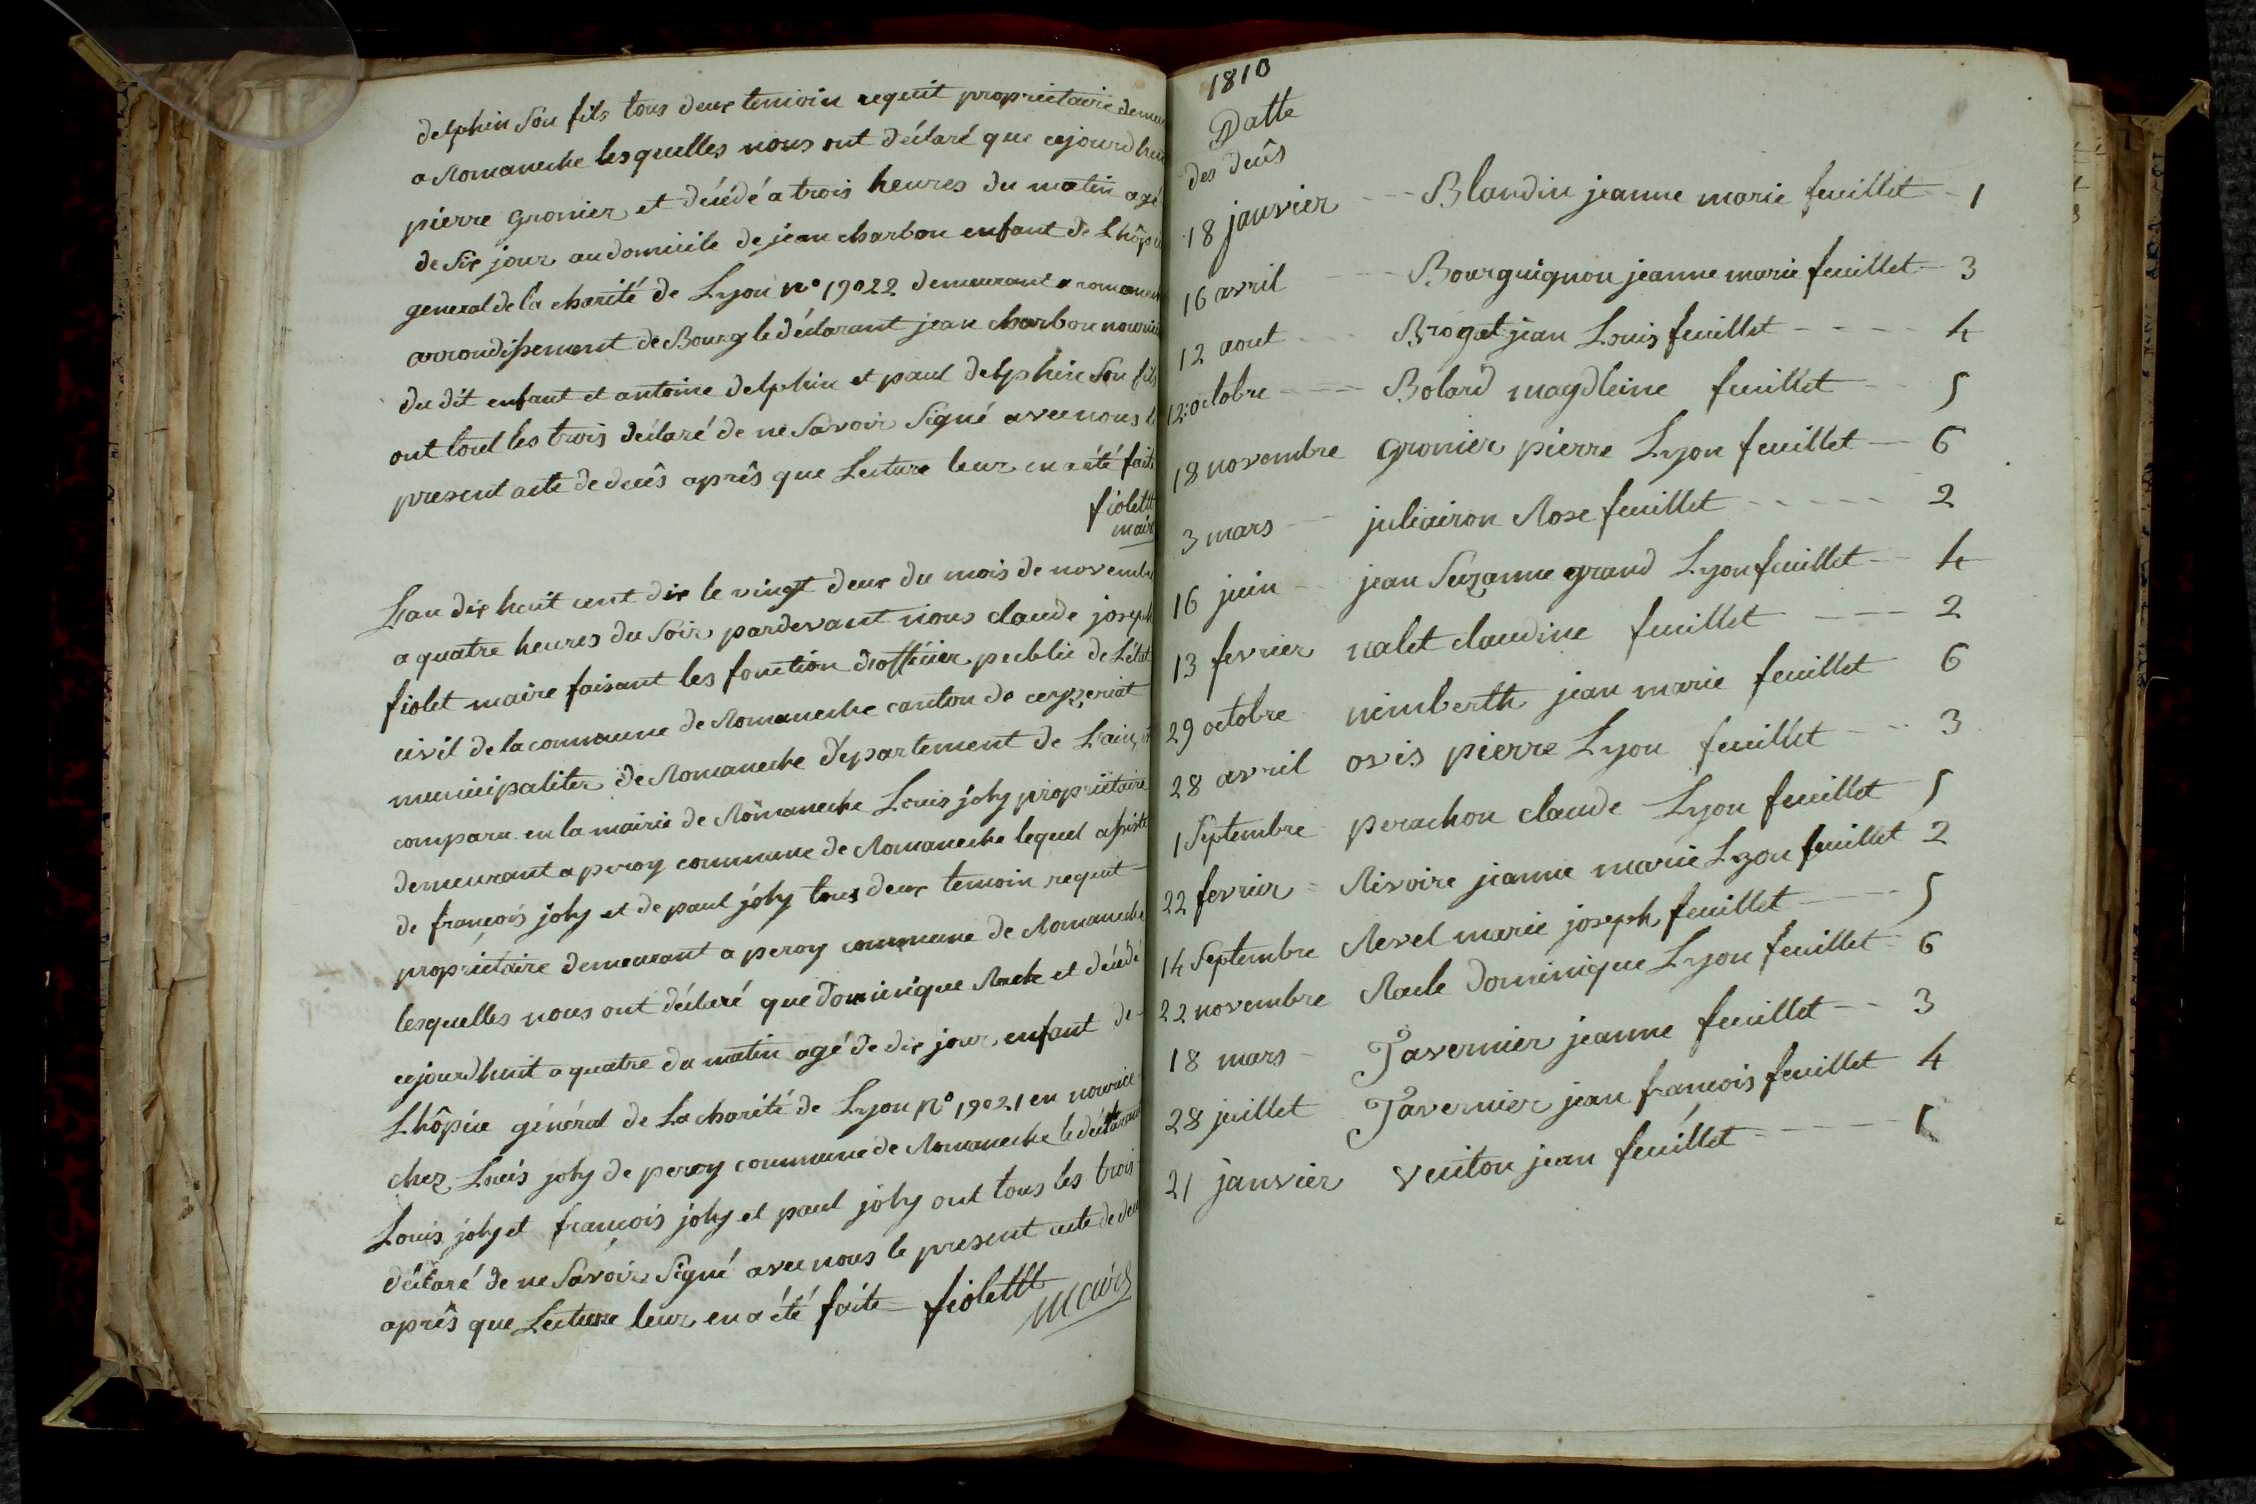 delphin Son fils tous deux temoin requit proprietaire demeu
a Romaneche lesquelles nous ont déclaré que cejourdhui
pierre gronier et décédé a trois heures du matin agé
de Six jour au domicile de jean charbon enfant de Lhôpi
general de la charité de Lyon n° 19022 demeurant a romanech
arrondissement de Bourg le déclarant jean charbon nourri
du dit enfant et antoine delphin et paul delphin Son fils
ont tout les trois déclaré de ne Savoir Signé avec nous le
present acte de decès après que Lecture leur en a été faite
fiolett
maire
Lan dix huit cent dix le vingt deux du mois de novembre
a quatre heures du Soir pardevant nous claude joseph
fiolet maire faisant les fonction d'officier public de L'état
civil de la commune de Romaneche canton de ceyzeriat
municipaliter de Romaneche departement de Lain, et
comparu en la mairie de Romaneche Louis joly propriétaire
demeurant a peroy commune de Romaneche lequel assisté
de françois joly et de paul joly tous deux temoin requit
propriétaire demeurant a peroy commune de Romaneche
lesquelles nous ont déclaré que dominique Racle et décédé
cejourdhuit a quatre du matin agé de dix jour enfant de
Lhôpice général de La charité de Lyon n° 19021 en nourice
chez Louis joly de peroy commune de Romaneche le déclarant
Louis joly et françois joly et paul joly ont tous les trois
déclaré de ne Savoir Signé avec nous le present acte de decè
après que Lecture leur en a été faite fiolettt
maire
1810
Datte
des decès
18 janvier Blandin jeanne marie feuillet 1
16 avril Bourguignon jeanne marie feuillet 3
12 aout Brogat jean Louis feuillet 4
12 octobre Bolard magdleine feuillet 5
18 novembre gronier pierre Lyon feuillet 6
3 mars juliairon Rose feuillet 2
16 juin jean Suzanne grand Lyon feuillet 4
13 fevrier nalet claudine feuillet 2
29 octobre nimberth jean marie feuillet 6
28 avril ovis pierre Lyon feuillet 3
1 Septembre perachon claude Lyon feuillet 5
22 fevrier Rivoire jeanne marie Lyon feuillet 2
14 Septembre Revel marie joseph feuillet 5
22 novembre Racle dominique Lyon feuillet 6
18 mars Tavernier jeanne feuillet 3
28 juillet Tavernier jean françois feuillet 4
21 janvier Veuiton jean feuillet 1